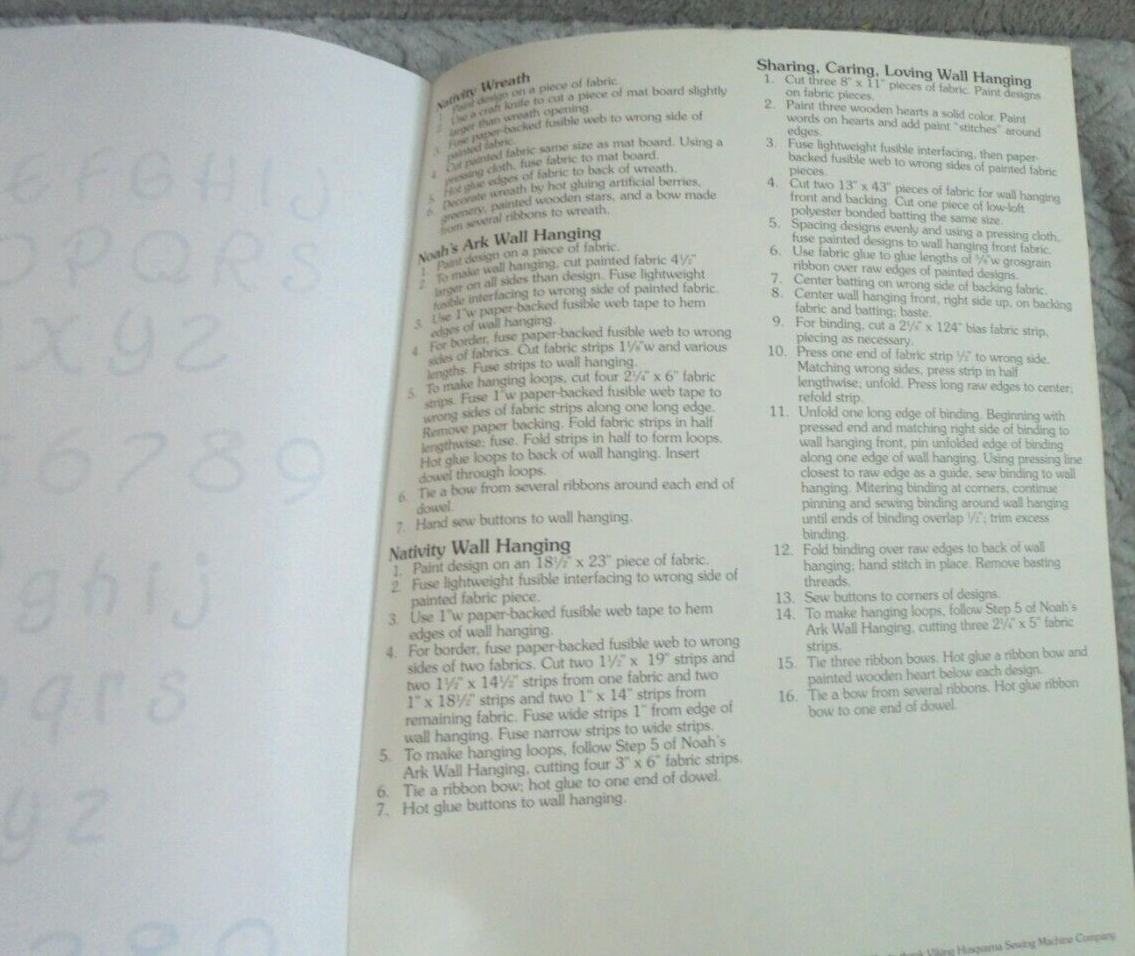 G H I J
P Q R S
X Y Z
6 7 8 9
g h i j
q r s
y z
Nativity Wreath
1. Paint design on a piece of fabric.
2. Use a craft knife to cut a piece of mat board slightly
larger than wreath opening.
3. Fuse paper-backed fusible web to wrong side of
painted fabric.
4. Cut painted fabric same size as mat board. Using a
pressing cloth, fuse fabric to mat board.
5. Hot glue edges of fabric to back of wreath.
6. Decorate wreath by hot gluing artificial berries,
greenery, painted wooden stars, and a bow made
from several ribbons to wreath.
Noah's Ark Wall Hanging
1. Paint design on a piece of fabric.
2. To make wall hanging, cut painted fabric 4½"
larger on all sides than design. Fuse lightweight
fusible interfacing to wrong side of painted fabric.
3. Use 1"w paper-backed fusible web tape to hem
edges of wall hanging.
4. For border, fuse paper-backed fusible web to wrong
sides of fabrics. Cut fabric strips and various
lengths. Fuse strips to wall hanging.
5. To make hanging loops, cut four 2¼" x 6" fabric
strips. Fuse 1"w paper-backed fusible web tape to
wrong sides of fabric strips along one long edge.
Remove paper backing. Fold fabric strips in half
lengthwise; fuse. Fold strips in half to form loops.
Hot glue loops to back of wall hanging. Insert
dowel through loops.
6. Tie a bow from several ribbons around each end of
dowel.
7. Hand sew buttons to wall hanging.
Nativity Wall Hanging
1. Paint design on an 18½" x 23" piece of fabric.
2. Fuse lightweight fusible interfacing to wrong side of
painted fabric piece.
3. Use 1"w paper-backed fusible web tape to hem
edges of wall hanging.
4. For border, fuse paper-backed fusible web to wrong
sides of two fabrics. Cut two 1½" x 19" strips and
two 1½" x 14½" strips from one fabric and two
1" x 18½" strips and two 1" x 14" strips from
remaining fabric. Fuse wide strips 1" from edge of
wall hanging. Fuse narrow strips to wide strips.
5. To make hanging loops, follow Step 5 of Noah's
Ark Wall Hanging, cutting four 3" x 6" fabric strips.
6. Tie a ribbon bow; hot glue to one end of dowel.
7. Hot glue buttons to wall hanging.
Sharing, Caring, Loving Wall Hanging
1. Cut three 8" x 11" pieces of fabric. Paint designs
on fabric pieces.
2. Paint three wooden hearts a solid color. Paint
words on hearts and add paint "stitches" around
edges.
3. Fuse lightweight fusible interfacing, then paper-
backed fusible web to wrong sides of painted fabric
pieces.
4. Cut two 13" x 43" pieces of fabric for wall hanging
front and backing. Cut one piece of low-loft
polyester bonded batting the same size.
5. Spacing designs evenly and using a pressing cloth,
fuse painted designs to wall hanging front fabric.
6. Use fabric glue to glue lengths of grosgrain
ribbon over raw edges of painted designs.
7. Center batting on wrong side of backing fabric.
8. Center wall hanging front, right side up, on backing
fabric and batting; baste.
9. For binding, cut a 2¼" x 124" bias fabric strip,
piecing as necessary.
10. Press one end of fabric strip ½" to wrong side.
Matching wrong sides, press strip in half
lengthwise; unfold. Press long raw edges to center;
refold strip.
11. Unfold one long edge of binding. Beginning with
pressed end and matching right side of binding to
wall hanging front, pin unfolded edge of binding
along one edge of wall hanging. Using pressing line
closest to raw edge as a guide, sew binding to wall
hanging. Mitering binding at corners, continue
pinning and sewing binding around wall hanging
until ends of binding overlap ½"; trim excess
binding.
12. Fold binding over raw edges to back of wall
hanging; hand stitch in place. Remove basting
threads.
13. Sew buttons to corners of designs.
14. To make hanging loops, follow Step 5 of Noah's
Ark Wall Hanging, cutting three 2¼" x 5" fabric
strips.
15. Tie three ribbon bows. Hot glue a ribbon bow and
painted wooden heart below each design.
16. Tie a bow from several ribbons. Hot glue ribbon
bow to one end of dowel.
Viking Husqvarna Sewing Machine Company